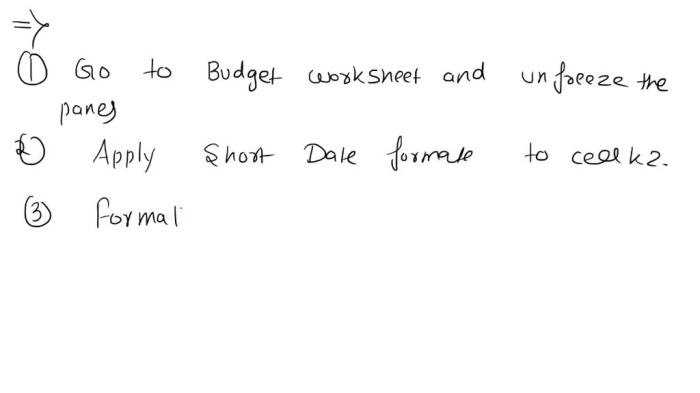 =>
① Go to Budget worksheet and unfreeze the
panes
② Apply Short Date formate to cell k2.
③ Format